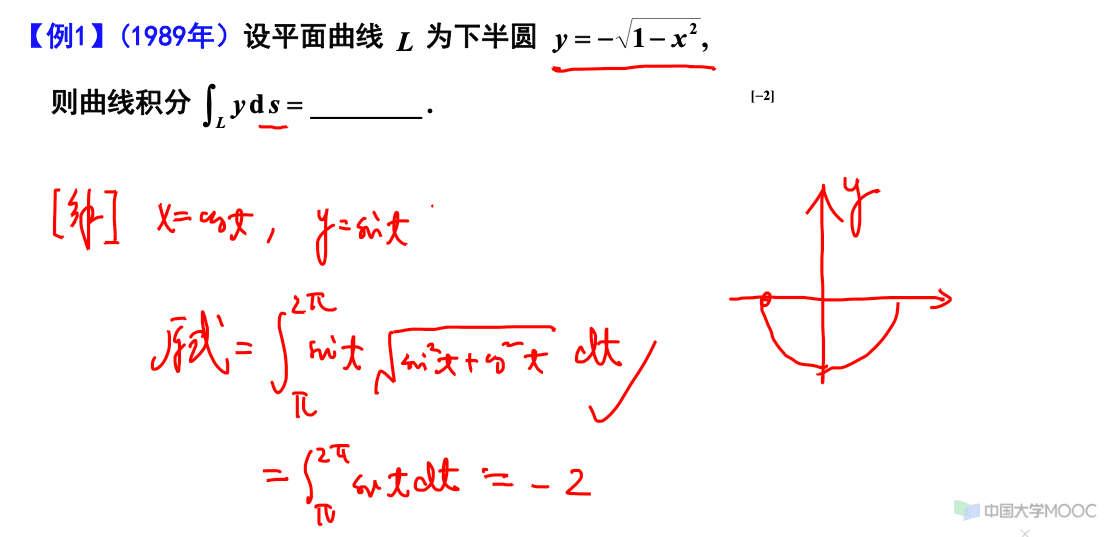 【例1】(1989年) 设平面曲线 L 为下半圆 y=-√(1-x²),
则曲线积分 ∫_L y ds = ________. [-2]
[解] x=cost, y=sint
y
原式 = ∫_π^{2π} sint √(sin²t+cos²t) dt
= ∫_π^{2π} sint dt = -2
中国大学MOOC